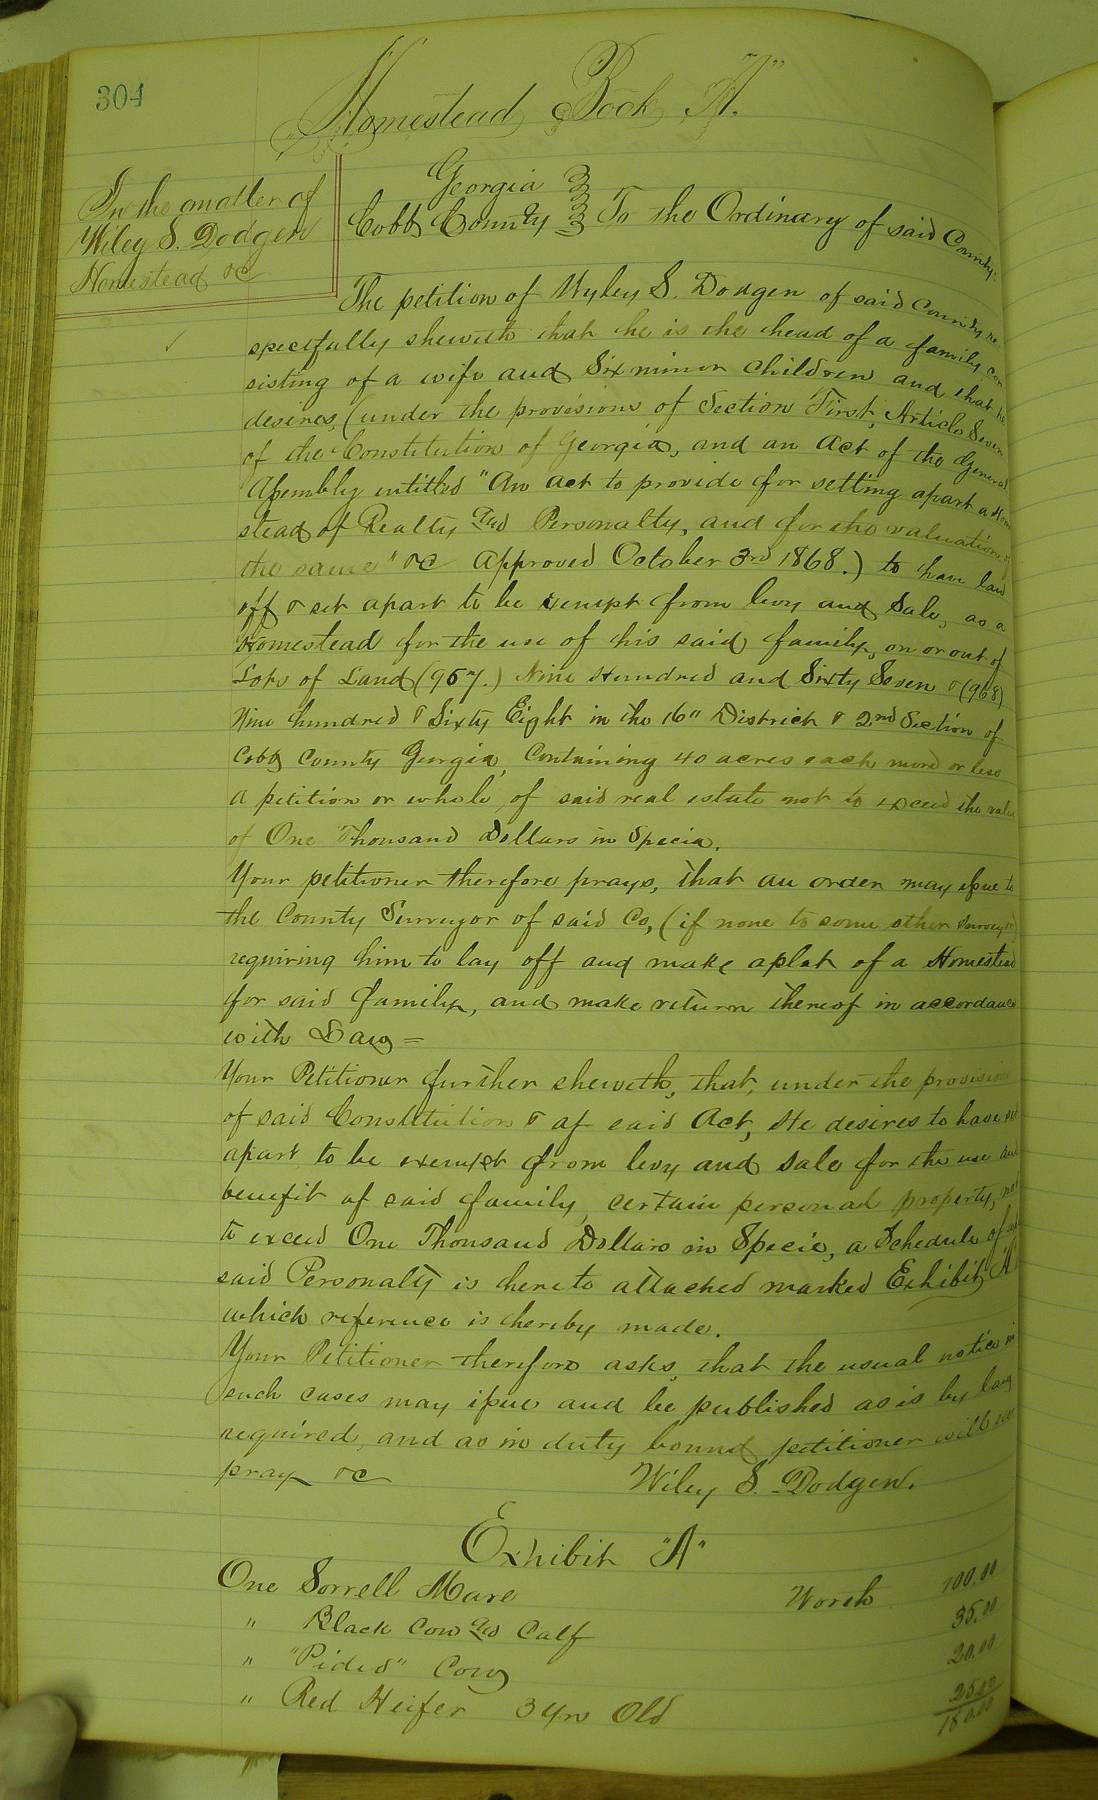 304
Homestead Book "A".
In the matter of
Wiley S. Dodgen
Homestead &c
Georgia
Cobb County } To the Ordinary of said County:
The petition of Wyley S. Dodgen of said County re
spectfully sheweth that he is the head of a family con
sisting of a wife and Six minor children and that he
desires, (under the provisions of Section First, Article Seven
of the Constitution of Georgia, and an Act of the General
Assembly entitled "An act to provide for setting apart a Home
stead of Realty and Personalty, and for the valuation of
the same" &c Approved October 3rd 1868.) to have laid
off & set apart to be exempt from levy and Sale, as a
Homestead for the use of his said family, on or out of
Lots of Land (967.) Nine Hundred and Sixty Seven & (968)
Nine hundred & Sixty Eight in the 16" District & 2nd Section of
Cobb County Georgia, Containing 40 acres each more or less
a petition or whole of said real estate not to exceed the value
of One Thousand Dollars in Specia.
Your petitioner therefore prays, that an order may issue to
the County Surveyor of said Co, (if none to some other Surveyor)
requiring him to lay off and make a plat of a Homestead
for said family, and make return thereof in accordance
with Law =
Your Petitioner further sheweth, that, under the provisions
of said Constitution & of said Act, He desires to have set
apart to be exempt from levy and sale for the use and
benefit of said family, certain personal property, not
to exceed One Thousand Dollars in Specie, a Schedule of
said Personalty is hereto attached marked Exhibit "A"
which reference is hereby made.
Your Petitioner therefore asks, that the usual notice in
such cases may issue and be published as is by law
required, and as in duty bound petitioner will ever
pray &c Wiley S. Dodgen.
Exhibit "A"
One Sorrell Mare Worth 100.00
" Black Cow and Calf 35.00
" "Pided" Cow 20.00
" Red Heifer 3 yrs Old 25.00
180.00